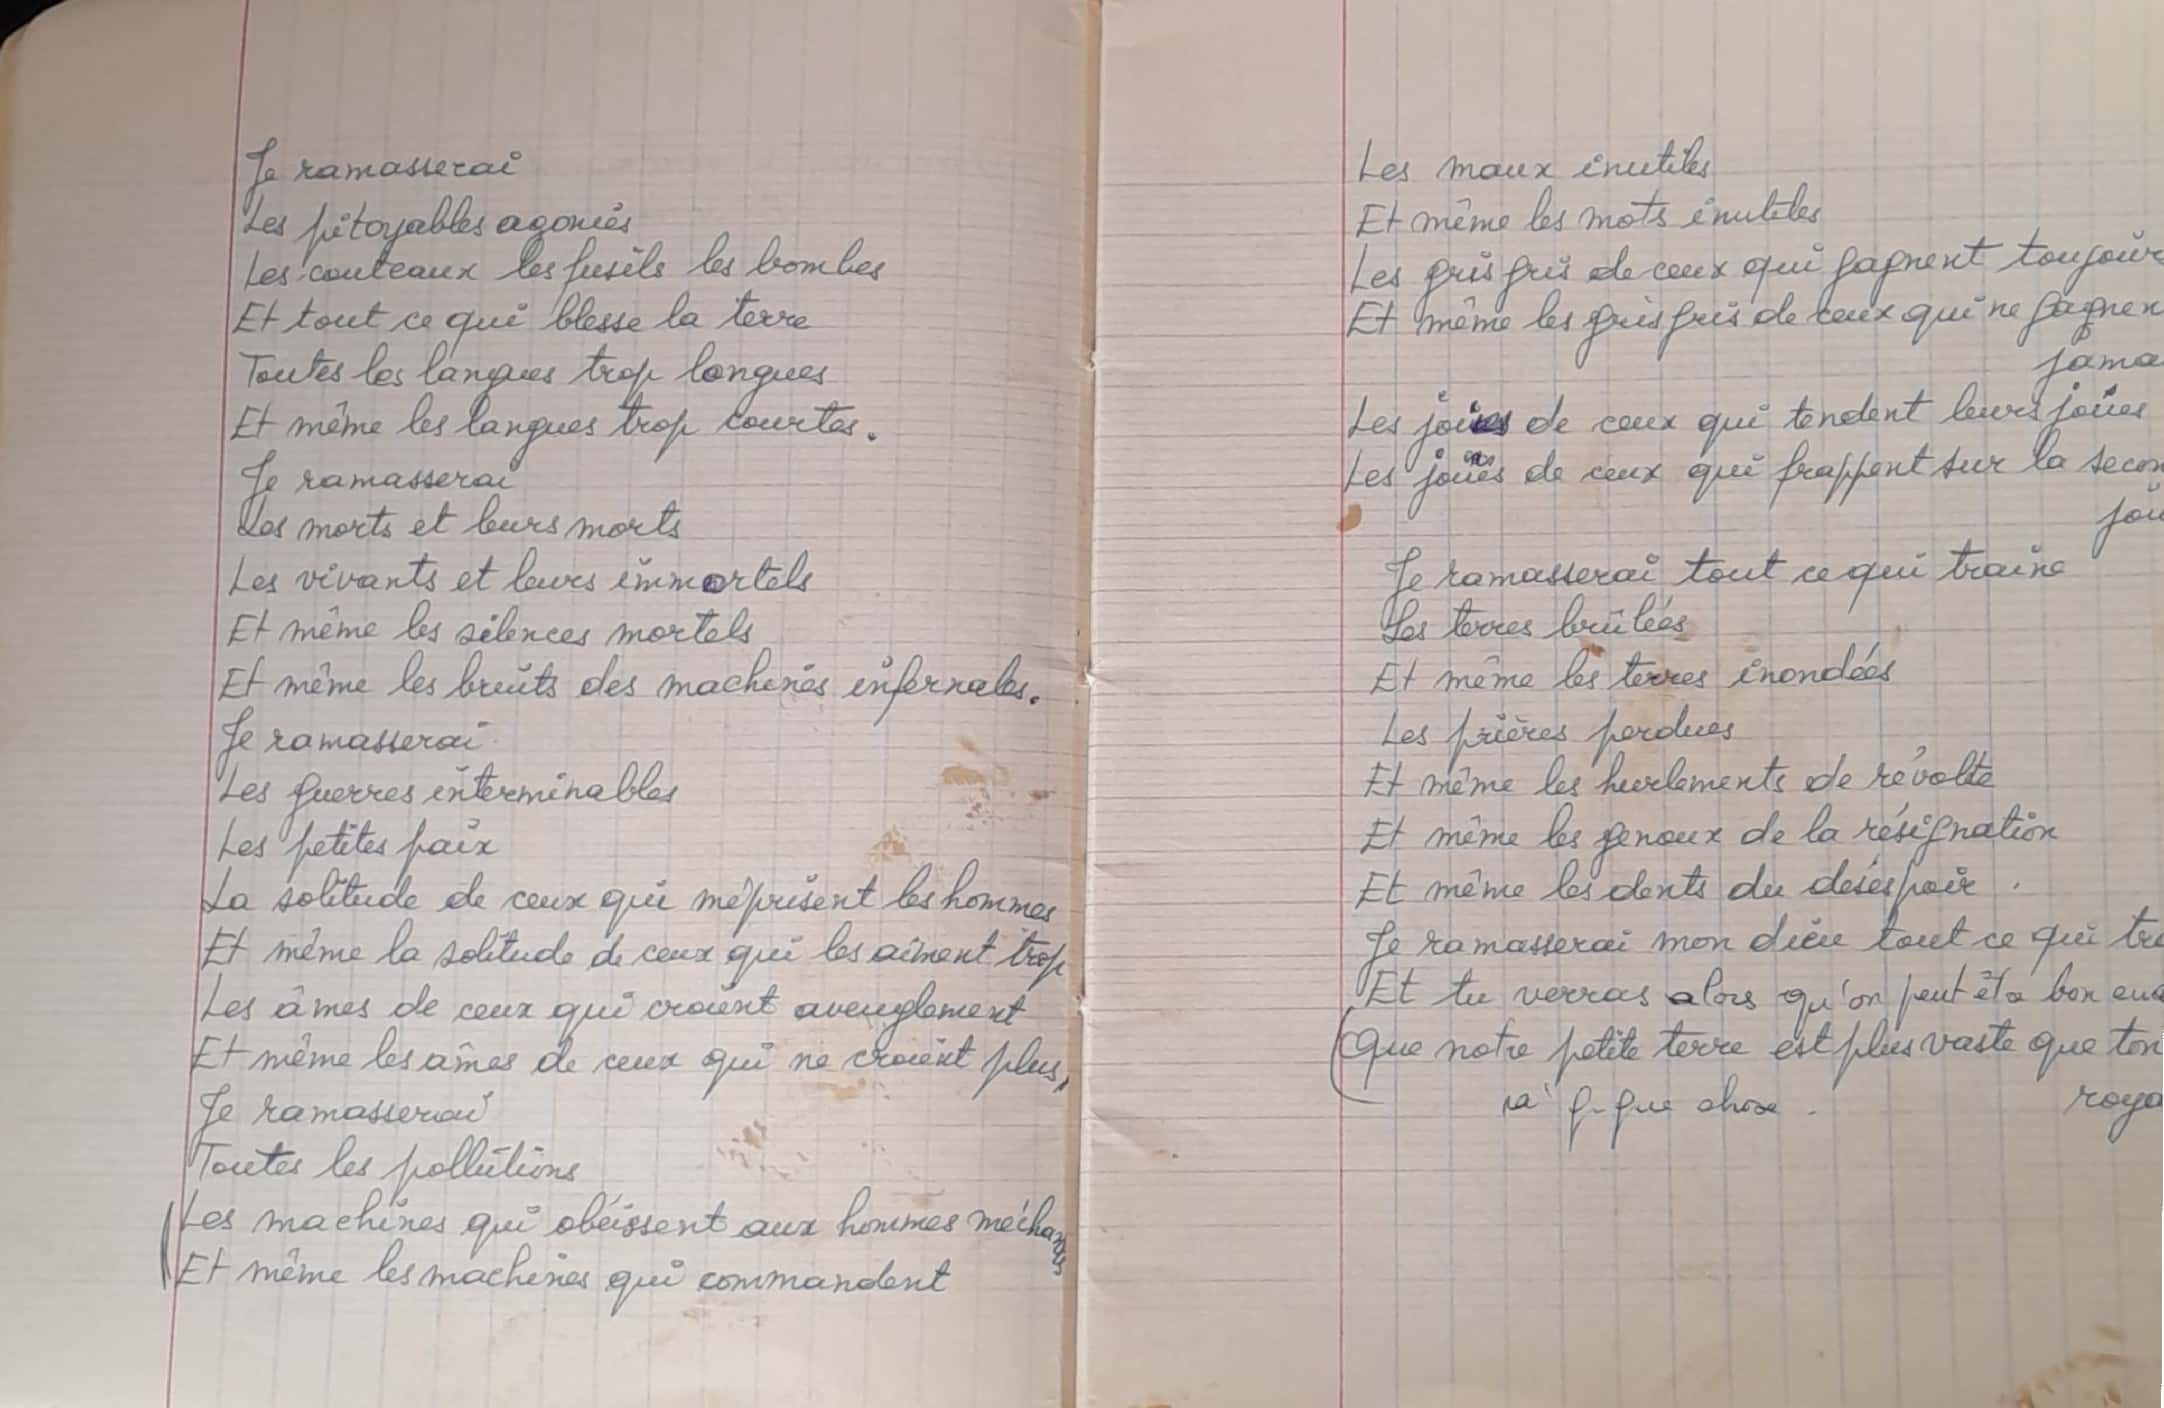 Je ramasserai
Les pitoyables agonies
Les couteaux les fusils les bombes
Et tout ce qui blesse la terre
Toutes les langues trop longues
Et même les langues trop courtes.
Je ramasserai
Les morts et leurs morts
Les vivants et leurs immortels
Et même les silences mortels
Et même les bruits des machines infernales.
Je ramasserai
Les guerres interminables
Les petites paix
La solitude de ceux qui méprisent les hommes
Et même la solitude de ceux qui les aiment trop
Les âmes de ceux qui croient aveuglement
Et même les âmes de ceux qui ne croient plus,
Je ramasserai
Toutes les pollutions
Les machines qui obéissent aux hommes méchants
Et même les machines qui commandent
Les maux inutiles
Et même les mots inutiles
Les gris gris de ceux qui gagnent toujour
Et même les gris gris de ceux qui ne gagnen
jama
Les joies de ceux qui tendent leurs joues
Les joies de ceux qui frappent sur la secon
jou
Je ramasserai tout ce qui traine
Les terres brûlées
Et même les terres inondées
Les prières perdues
Et même les hurlements de révolte
Et même les genoux de la résignation
Et même les dents du désespoir.
Je ramasserai mon dieu tout ce qui tra
Et tu verras alors qu'on peut être bon
(Que notre petite terre est plus vaste que ton
à q. que chose.
roya